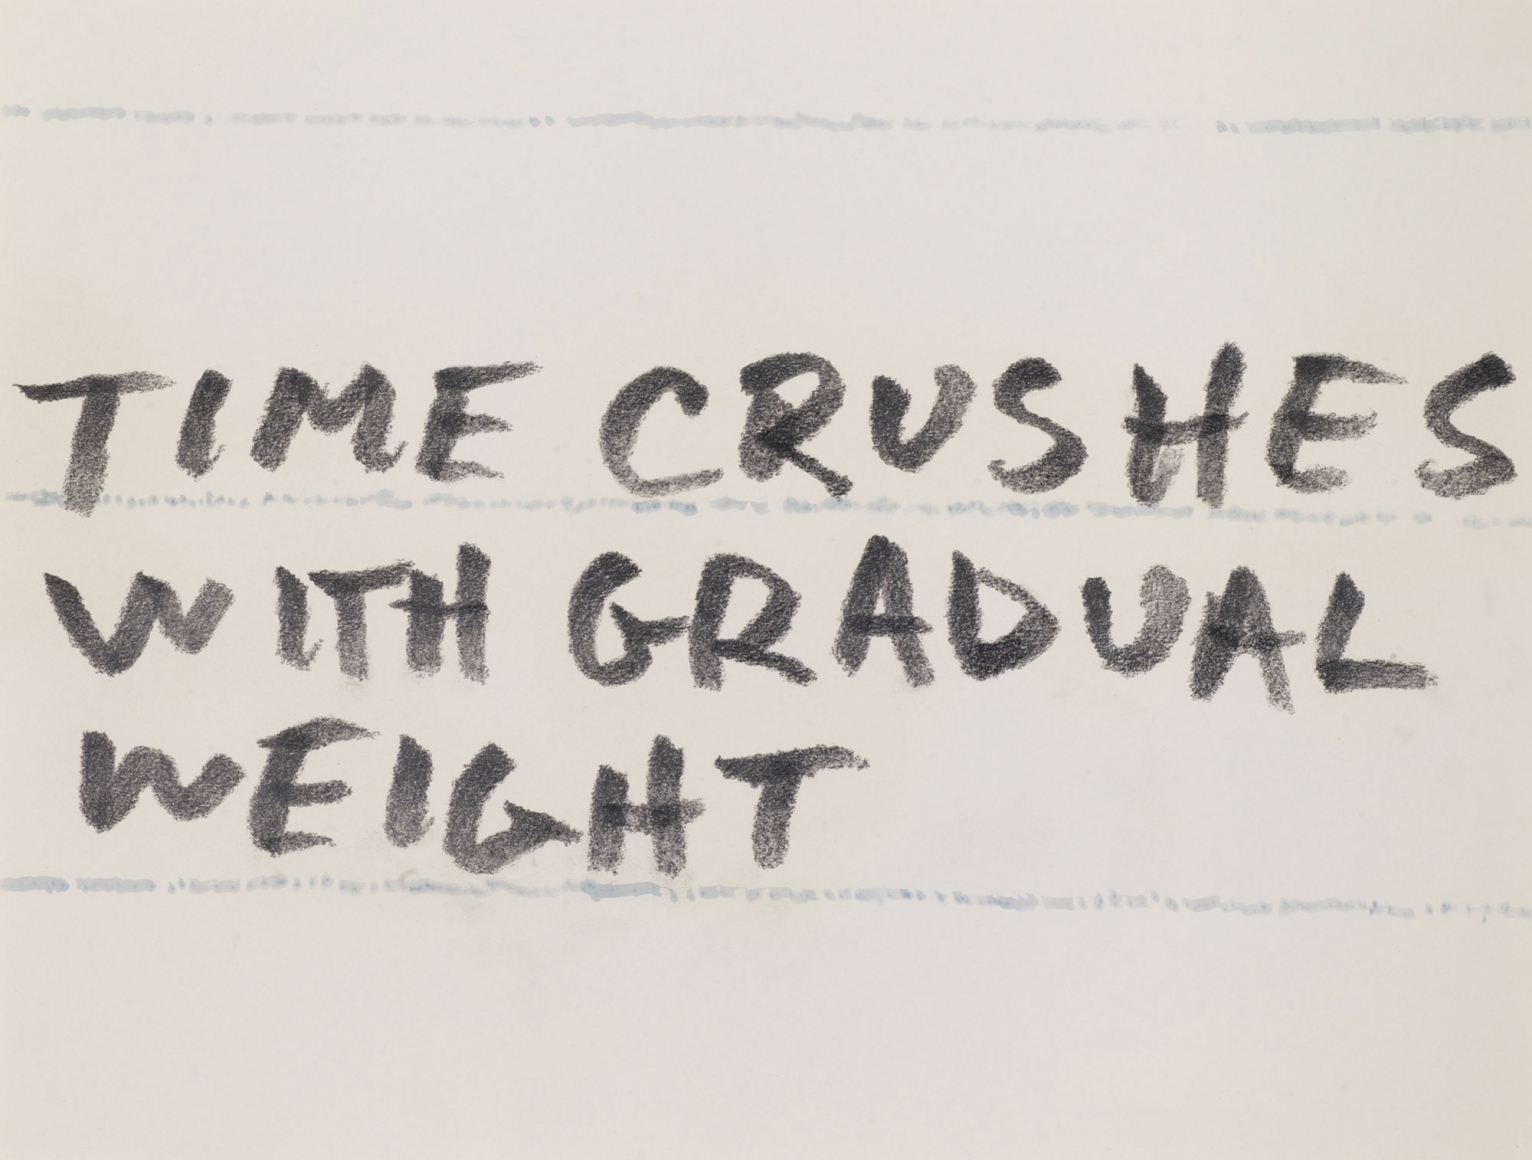 TIME CRUSHES
WITH GRADUAL
WEIGHT